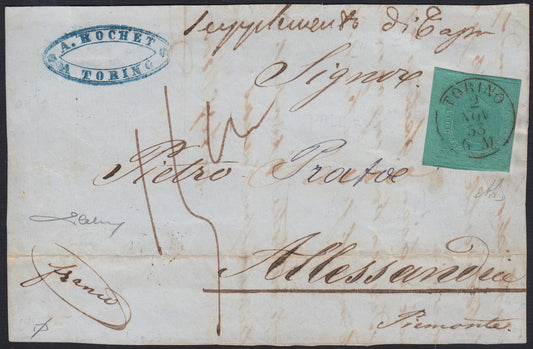 A. ROCHET
A TORINO
Supplemento di Tassa
Signor
TORINO
2
NOV
53
6 M
Pietro Pratoe
franco
Allessandria
Piemonte.